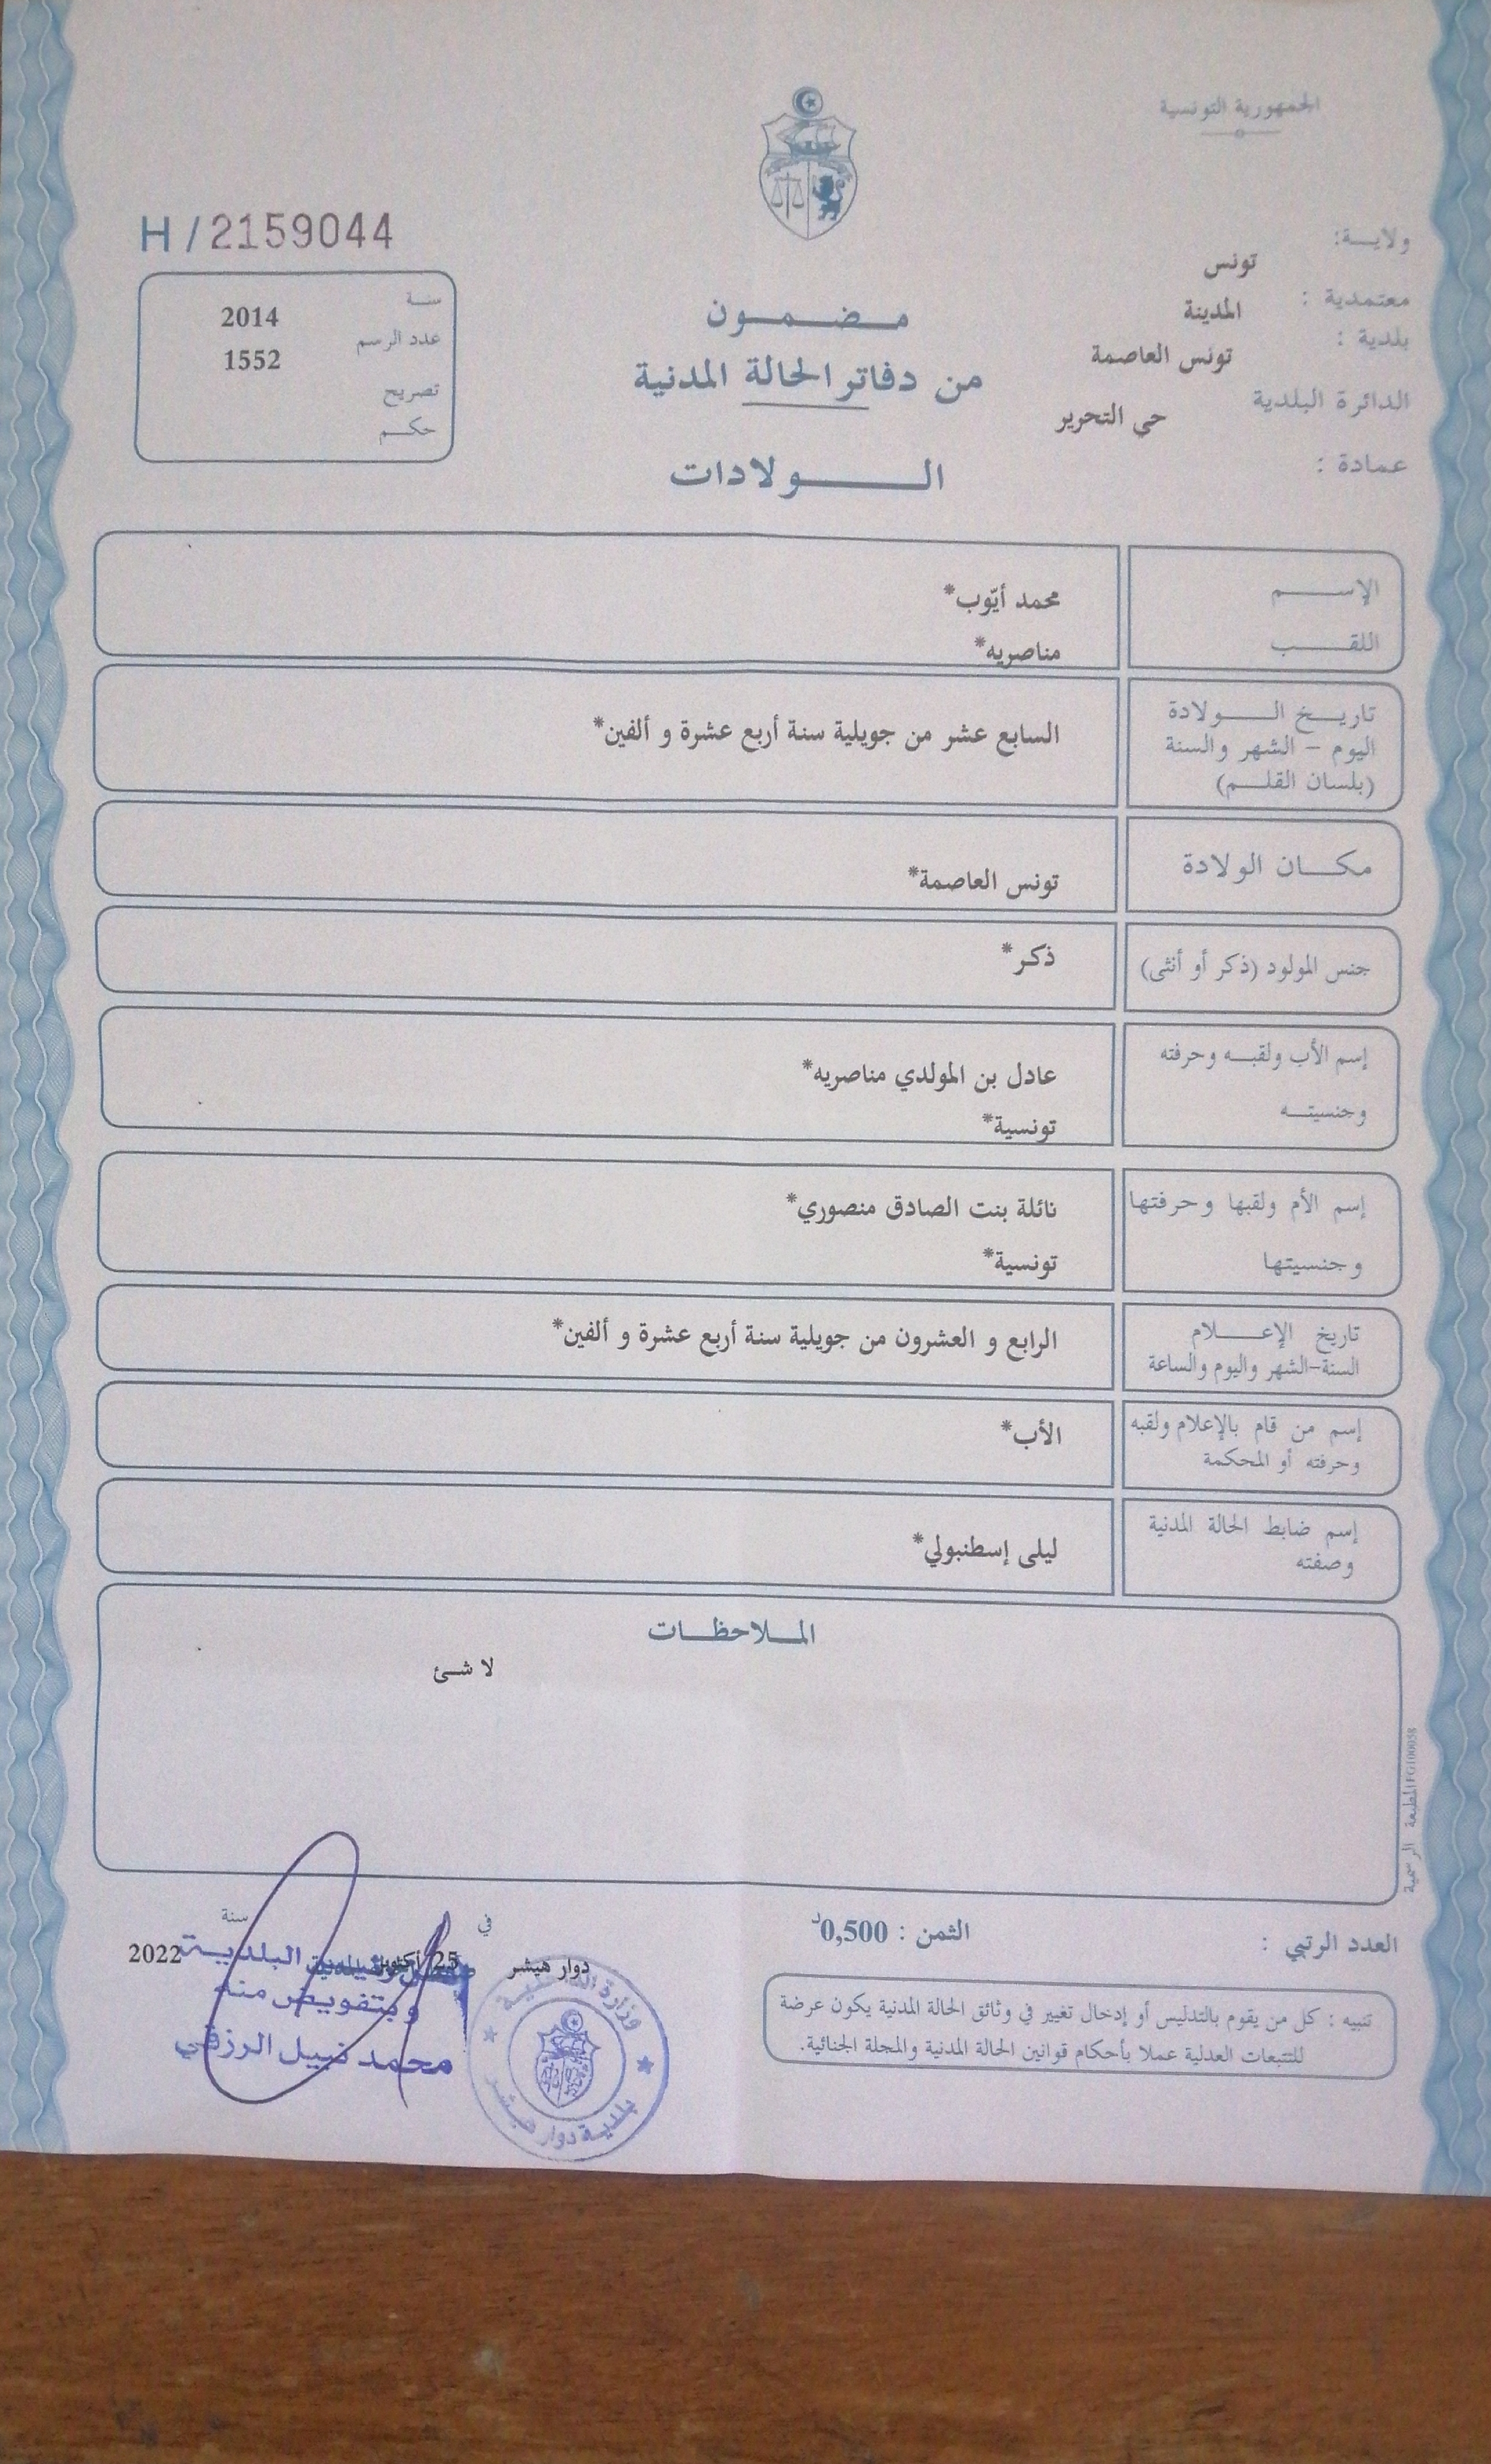 الجمهورية التونسية
ولايــة: تونس
معتمدية : المدينة
بلدية : تونس العاصمة
الدائرة البلدية حي التحرير
عمادة :
H / 2159044
سنة 2014
عدد الرسم 1552
تصريح
حكم
مضمون
من دفاتر الحالة المدنية
الولادات
الإسم محمد أيّوب*
اللقب مناصريه*
تاريخ الولادة
اليوم - الشهر والسنة
(بلسان القلم)
السابع عشر من جويلية سنة أربع عشرة و ألفين*
مكان الولادة تونس العاصمة*
جنس المولود (ذكر أو أنثى) ذكر*
إسم الأب ولقبه وحرفته عادل بن المولدي مناصريه*
وجنسيته تونسية*
إسم الأم ولقبها وحرفتها نائلة بنت الصادق منصوري*
وجنسيتها تونسية*
تاريخ الإعلام
السنة-الشهر واليوم والساعة
الرابع و العشرون من جويلية سنة أربع عشرة و ألفين*
إسم من قام بالإعلام ولقبه
وحرفته أو المحكمة
الأب*
إسم ضابط الحالة المدنية
وصفته
ليلى إسطنبولي*
الملاحظات
لا شئ
المطبعة الرسمية FG100058
العدد الرتبي :
الثمن : 0,500د
تنبيه : كل من يقوم بالتدليس أو إدخال تغيير في وثائق الحالة المدنية يكون عرضة
للتتبعات العدلية عملا بأحكام قوانين الحالة المدنية والمجلة الجنائية.
في سنة
دوار هيشر 25 أكتوبر 2022
البلدية
وبتفويض منه
محمد نبيل الرزقي
وزارة الداخلية
بلدية دوار هيشر